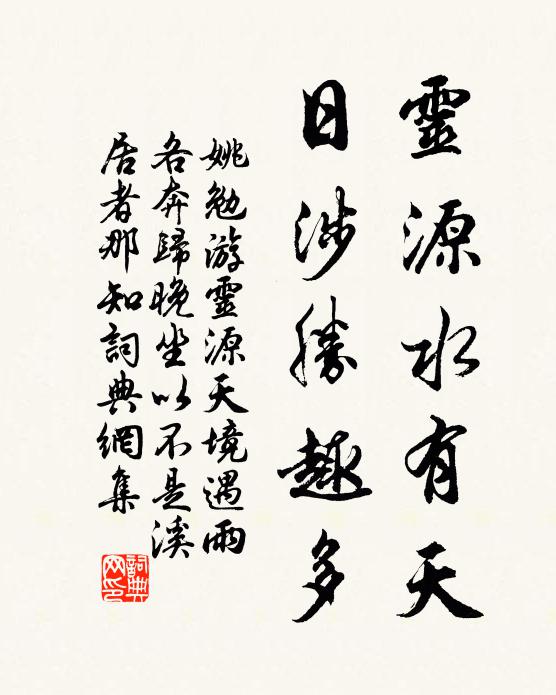 靈源水有天
日涉勝趣多
姚勉游靈源天境遇雨
各奔歸晚坐以不是溪
居者那知詞典網集
詞典网印